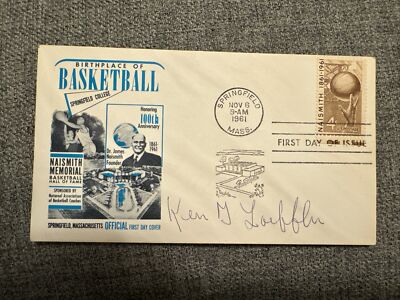 BIRTHPLACE OF
BASKETBALL
SPRINGFIELD COLLEGE
Honoring
100th
Anniversary
1861
1961
Dr. James
Naismith
Founder
NAISMITH
MEMORIAL
BASKETBALL
HALL OF FAME
SPONSORED BY
National Association
of Basketball Coaches
SPRINGFIELD, MASSACHUSETTS OFFICIAL FIRST DAY COVER
SPRINGFIELD
NOV 6
9-AM
1961
MASS.
NAISMITH 1861-1961
FIRST DAY OF ISSUE
Ken Loeffler